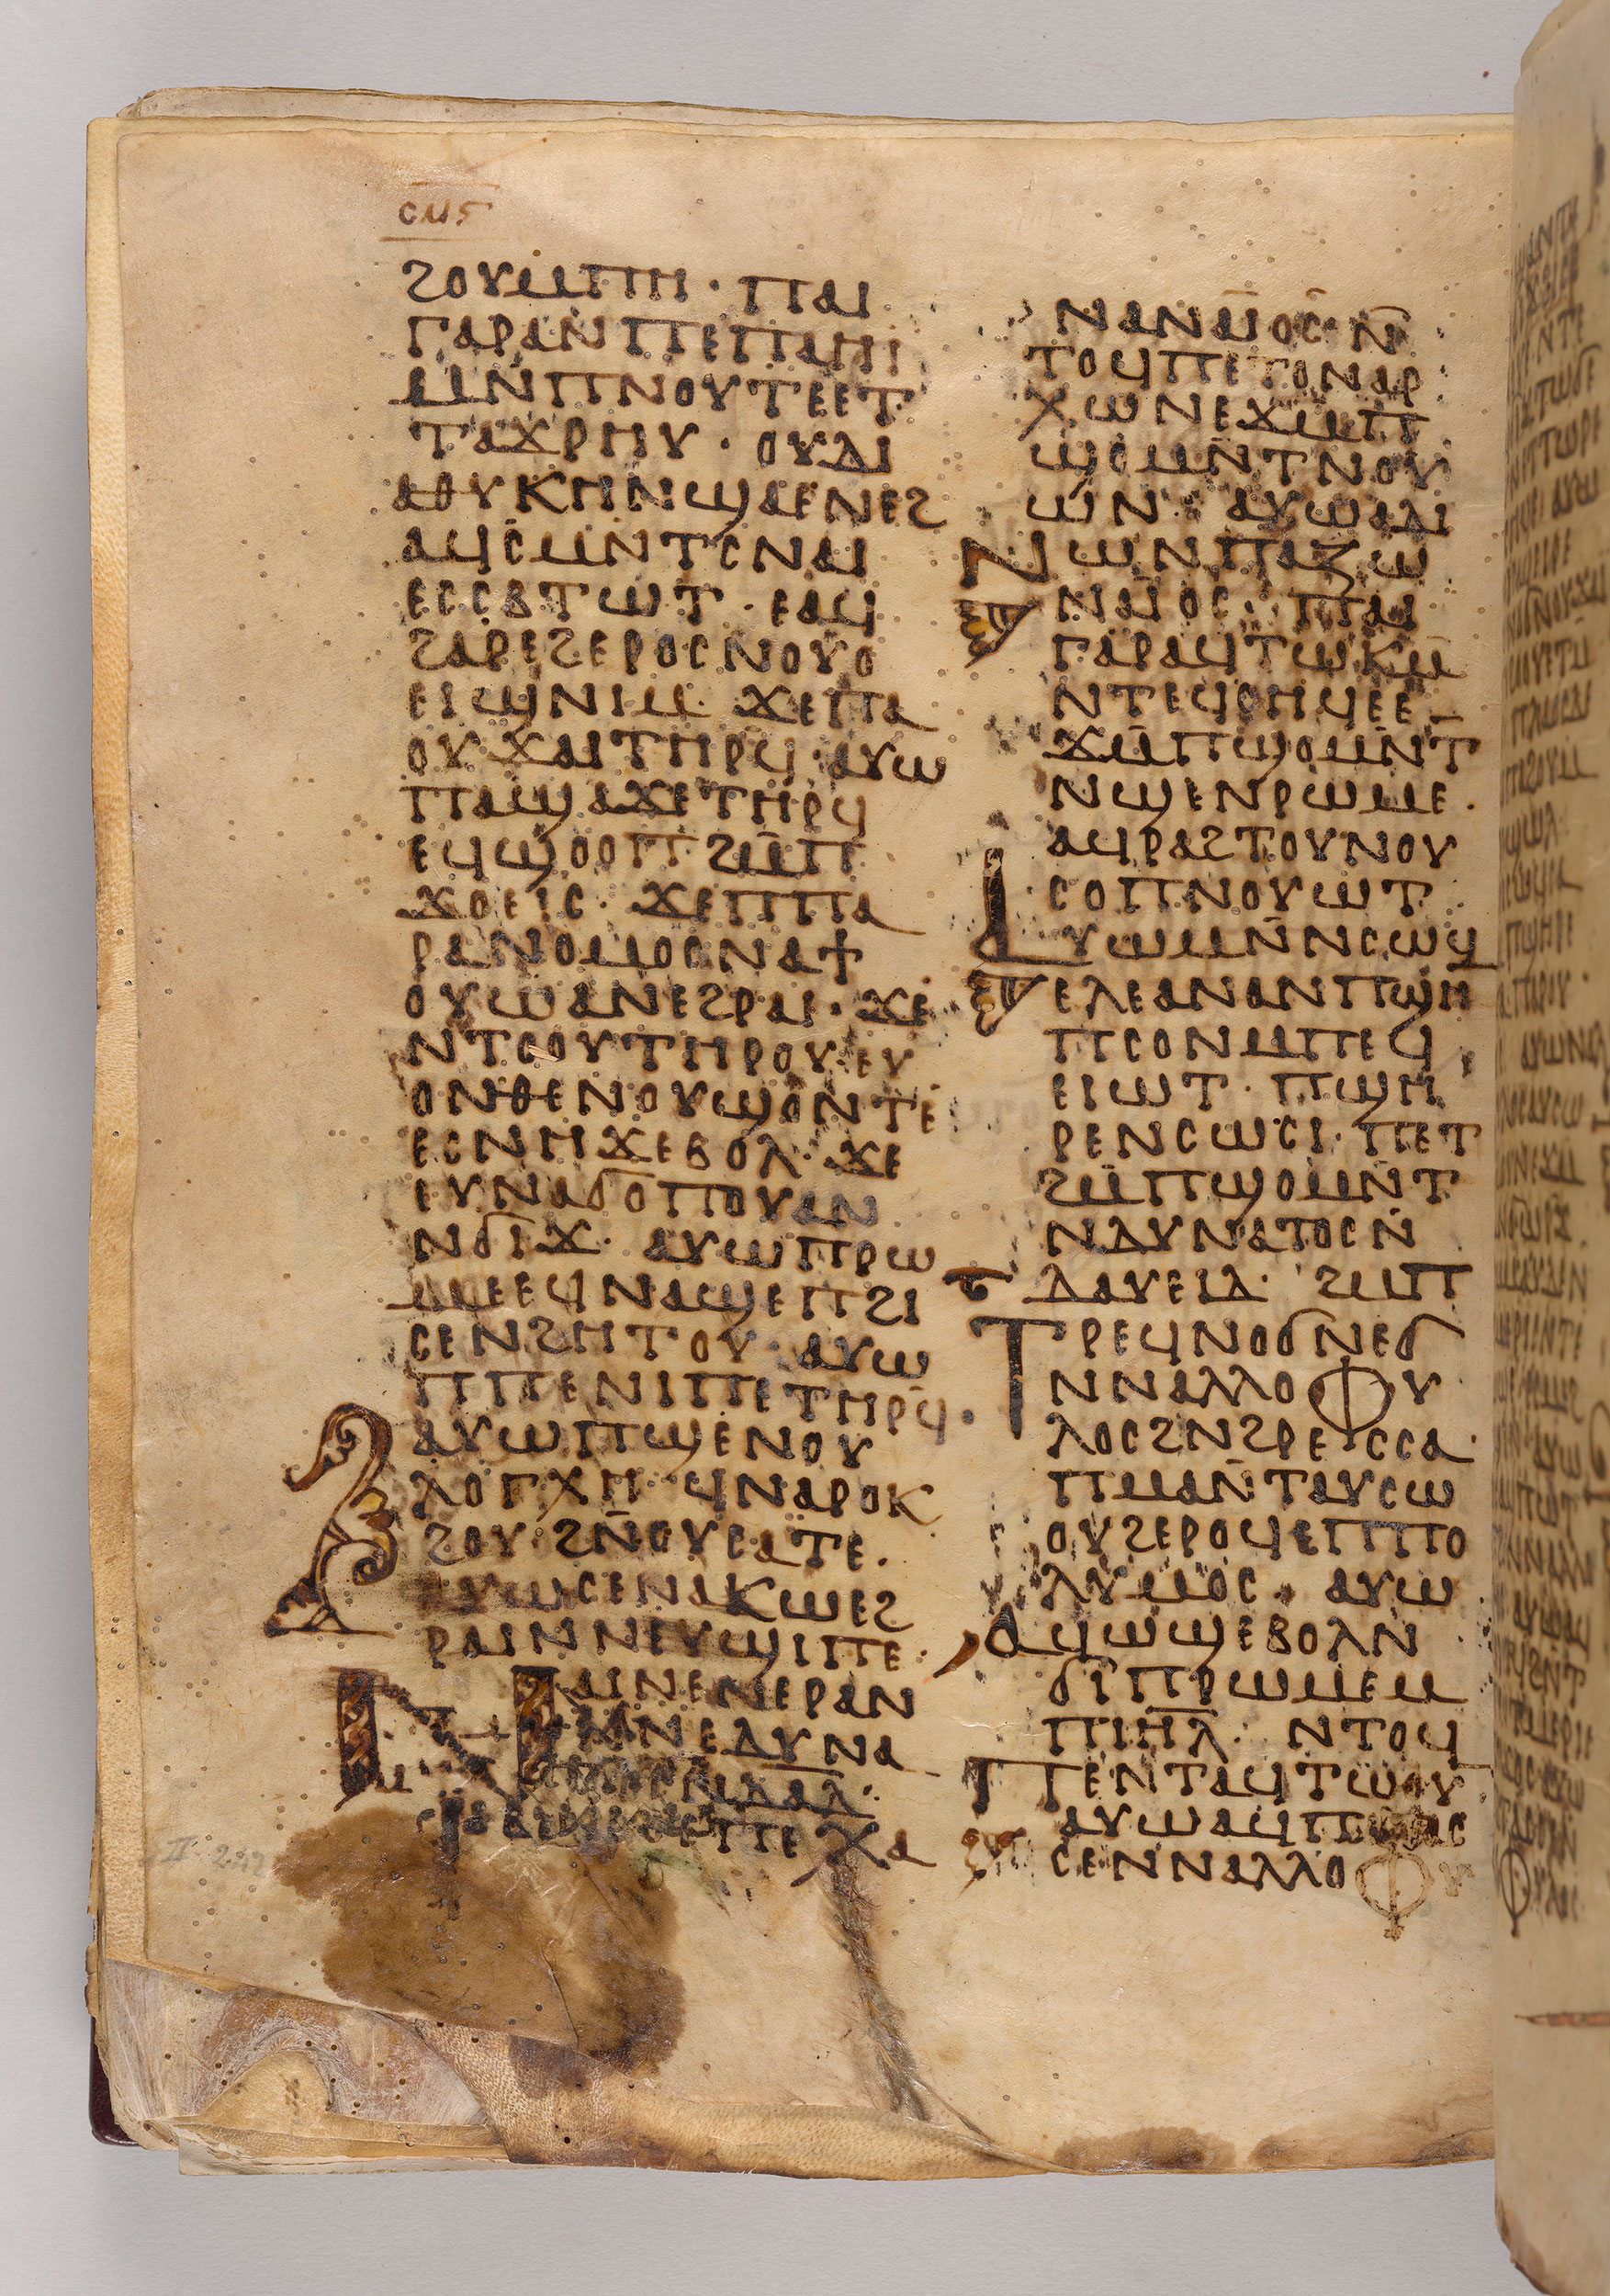 ⲥⲙⲋ
ϩⲟⲩⲙⲡⲏ · ⲡⲁⲓ
ⲅⲁⲣⲁⲛⲡⲉⲡⲁⲏⲓ
ⲙⲛⲡⲛⲟⲩⲧⲉⲉⲧ
ⲧⲁϫⲣⲏⲩ · ⲟⲩⲇⲓ
ⲁⲑⲩⲕⲏⲛϣⲁⲉⲛⲉϩ
ⲁϥⲥⲙⲛⲧⲥⲛⲁⲓ
ⲉⲥⲥⲃⲧⲱⲧ · ⲉⲁϥ
ϩⲁⲣⲉϩⲉⲣⲟⲥⲛⲟⲩⲟ
ⲉⲓϣⲛⲓⲙ · ϫⲉⲡⲁ
ⲟⲩϫⲁⲓⲧⲏⲣϥ · ⲁⲩⲱ
ⲡⲁϣⲁϫⲉⲧⲏⲣϥ
ⲉϥϣⲟⲟⲡ ϩⲙ̄ⲡ
ϫⲟⲉⲓⲥ · ϫⲉⲡⲡⲁ
ⲣⲁⲛⲟⲙⲟⲥⲛⲁϯ
ⲟⲩⲱⲁⲛⲉϩⲣⲁⲓ · ϫⲉ
ⲛⲧⲟⲟⲩⲧⲏⲣⲟⲩ · ⲉⲩ
ⲟⲛⲑⲉⲛⲟⲩϣⲟⲛⲧⲉ
ⲉⲥⲛⲏϫⲉⲃⲟⲗ · ϫⲉ
ⲉⲩⲛⲁϭⲟⲡⲟⲩⲁⲛ
ⲛϭⲓϫ · ⲁⲩⲱⲡⲣⲱ
ⲙⲉⲉϥⲛⲁϣⲉⲡϩⲓ
ⲥⲉⲛϩⲏⲧⲟⲩ · ⲁⲩⲱ
ⲡⲡⲉⲛⲓⲡⲉⲧⲏⲣϥ ·
ⲁⲩⲱⲡϣⲉⲛⲟⲩ
ⲗⲟⲅⲭⲏ · ϥⲛⲁⲣⲟⲕ
ϩⲟⲩ · ϩⲛ̄ⲟⲩⲥⲁⲧⲉ ·
ⲁⲩⲱⲥⲉⲛⲁⲕⲱⲉϩ
ⲣⲁⲓⲛⲛⲉⲩϣⲓⲡⲉ ·
ⲛⲁⲓⲛⲉⲛⲉⲣⲁⲛ
ⲛⲛⲉⲇⲩⲛⲁ
ⲡⲉ ⲭⲁ
ⲛⲁⲛⲁⲓⲟⲥ ⲛ̄
ⲧⲟϥⲡⲉⲧⲟⲛⲁⲣ
ⲭⲱⲛⲉϫⲙ̄ⲡ
ϣⲟⲙⲛ̄ⲧⲛⲟⲩ
ⲱⲛ · ⲁⲩⲱⲁⲇⲓ
ⲛⲱⲛⲡⲁⲍⲱ
ⲛⲁⲓⲟⲥ · ⲡⲁⲓ
ⲅⲁⲣⲁϥⲧⲱⲕⲙ̄
ⲛⲧⲉϥⲥⲏϥⲉⲉ
ϫⲙ̄ⲡϣⲟⲙⲛ̄ⲧ
ⲛϣⲉⲛⲣⲱⲙⲉ ·
ⲁϥⲣⲁϩⲧⲟⲩⲛⲟⲩ
ⲥⲟⲡⲛⲟⲩⲱⲧ
ⲁⲩⲱⲙⲛ̄ⲛⲥⲱϥ
ⲉⲗⲉⲁⲛⲁⲛⲡϣⲏ
ⲡⲥⲟⲛⲙⲡⲉϥ
ⲉⲓⲱⲧ · ⲡϣⲏ
ⲣⲉⲛⲥⲱⲥⲓ · ⲡⲉⲧ
ϩⲙ̄ⲡϣⲟⲙⲛ̄ⲧ
ⲛⲇⲩⲛⲁⲧⲟⲥⲛ̄
ⲇⲁⲩⲉⲓⲇ · ϩⲙⲡ
ⲧⲣⲉϥⲛⲟϭⲛⲉϭ
ⲛⲛⲁⲗⲗⲟⲫⲩ
ⲗⲟⲥϩⲛϩⲣⲉⲥⲥⲁ ·
ⲡⲙⲁⲛ̄ⲧⲁⲩⲥⲱ
ⲟⲩϩⲉⲣⲟϥⲉⲡⲡⲟ
ⲗⲩⲙⲟⲥ · ⲁⲩⲱ
ⲁϥⲱϣⲉⲃⲟⲗⲛ
ϭⲓⲡⲣⲱⲙⲉⲙ
ⲡⲓⲏⲗ · ⲛⲧⲟϥ
ⲡⲉⲛⲧⲁϥⲧⲱⲟⲩ
ⲁⲩⲱⲁϥⲡ
ⲥⲉⲛⲛⲁⲗⲗⲟⲫⲩ